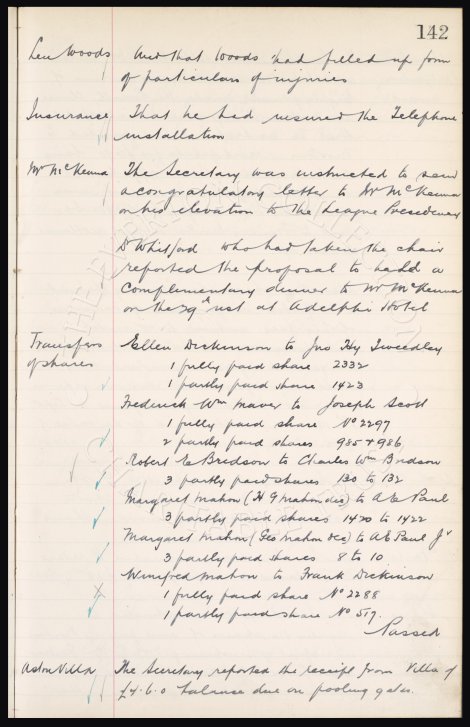 142
Len Woods And that Woods had filled up form
of particulars of injuries
Insurance That he had insured the Telephone
installation
Mr McKenna The Secretary was instructed to send
a congratulatory letter to Mr McKenna
on his elevation to the League Presidency
Dr Whitford who had taken the chair
reported the proposal to hold a
Complimentary dinner to Mr McKenna
on the 29th inst at Adelphi Hotel
Transfers Ellen Dickinson to Jno Hy Tweedley
of shares 1 fully paid share 2332
1 partly paid share 1423
Frederick Wm Maver to Joseph Scott
1 fully paid share No 2297
2 partly paid shares 985 + 986
Robert E Bridson to Charles Wm Bridson
3 partly paid shares 130 to 132
Margaret Mahon (H G Mahon dec) to A E Paul
3 partly paid shares 1420 to 1422
Margaret Mahon (Geo Mahon dec) to A E Paul Jr
3 partly paid shares 8 to 10
Winifred Mahon to Frank Dickinson
1 fully paid share No 2288
1 partly paid share No 517.
Passed
Aston Villa The Secretary reported the receipt from Villa of
£4.6.0 balance due on pooling gates.